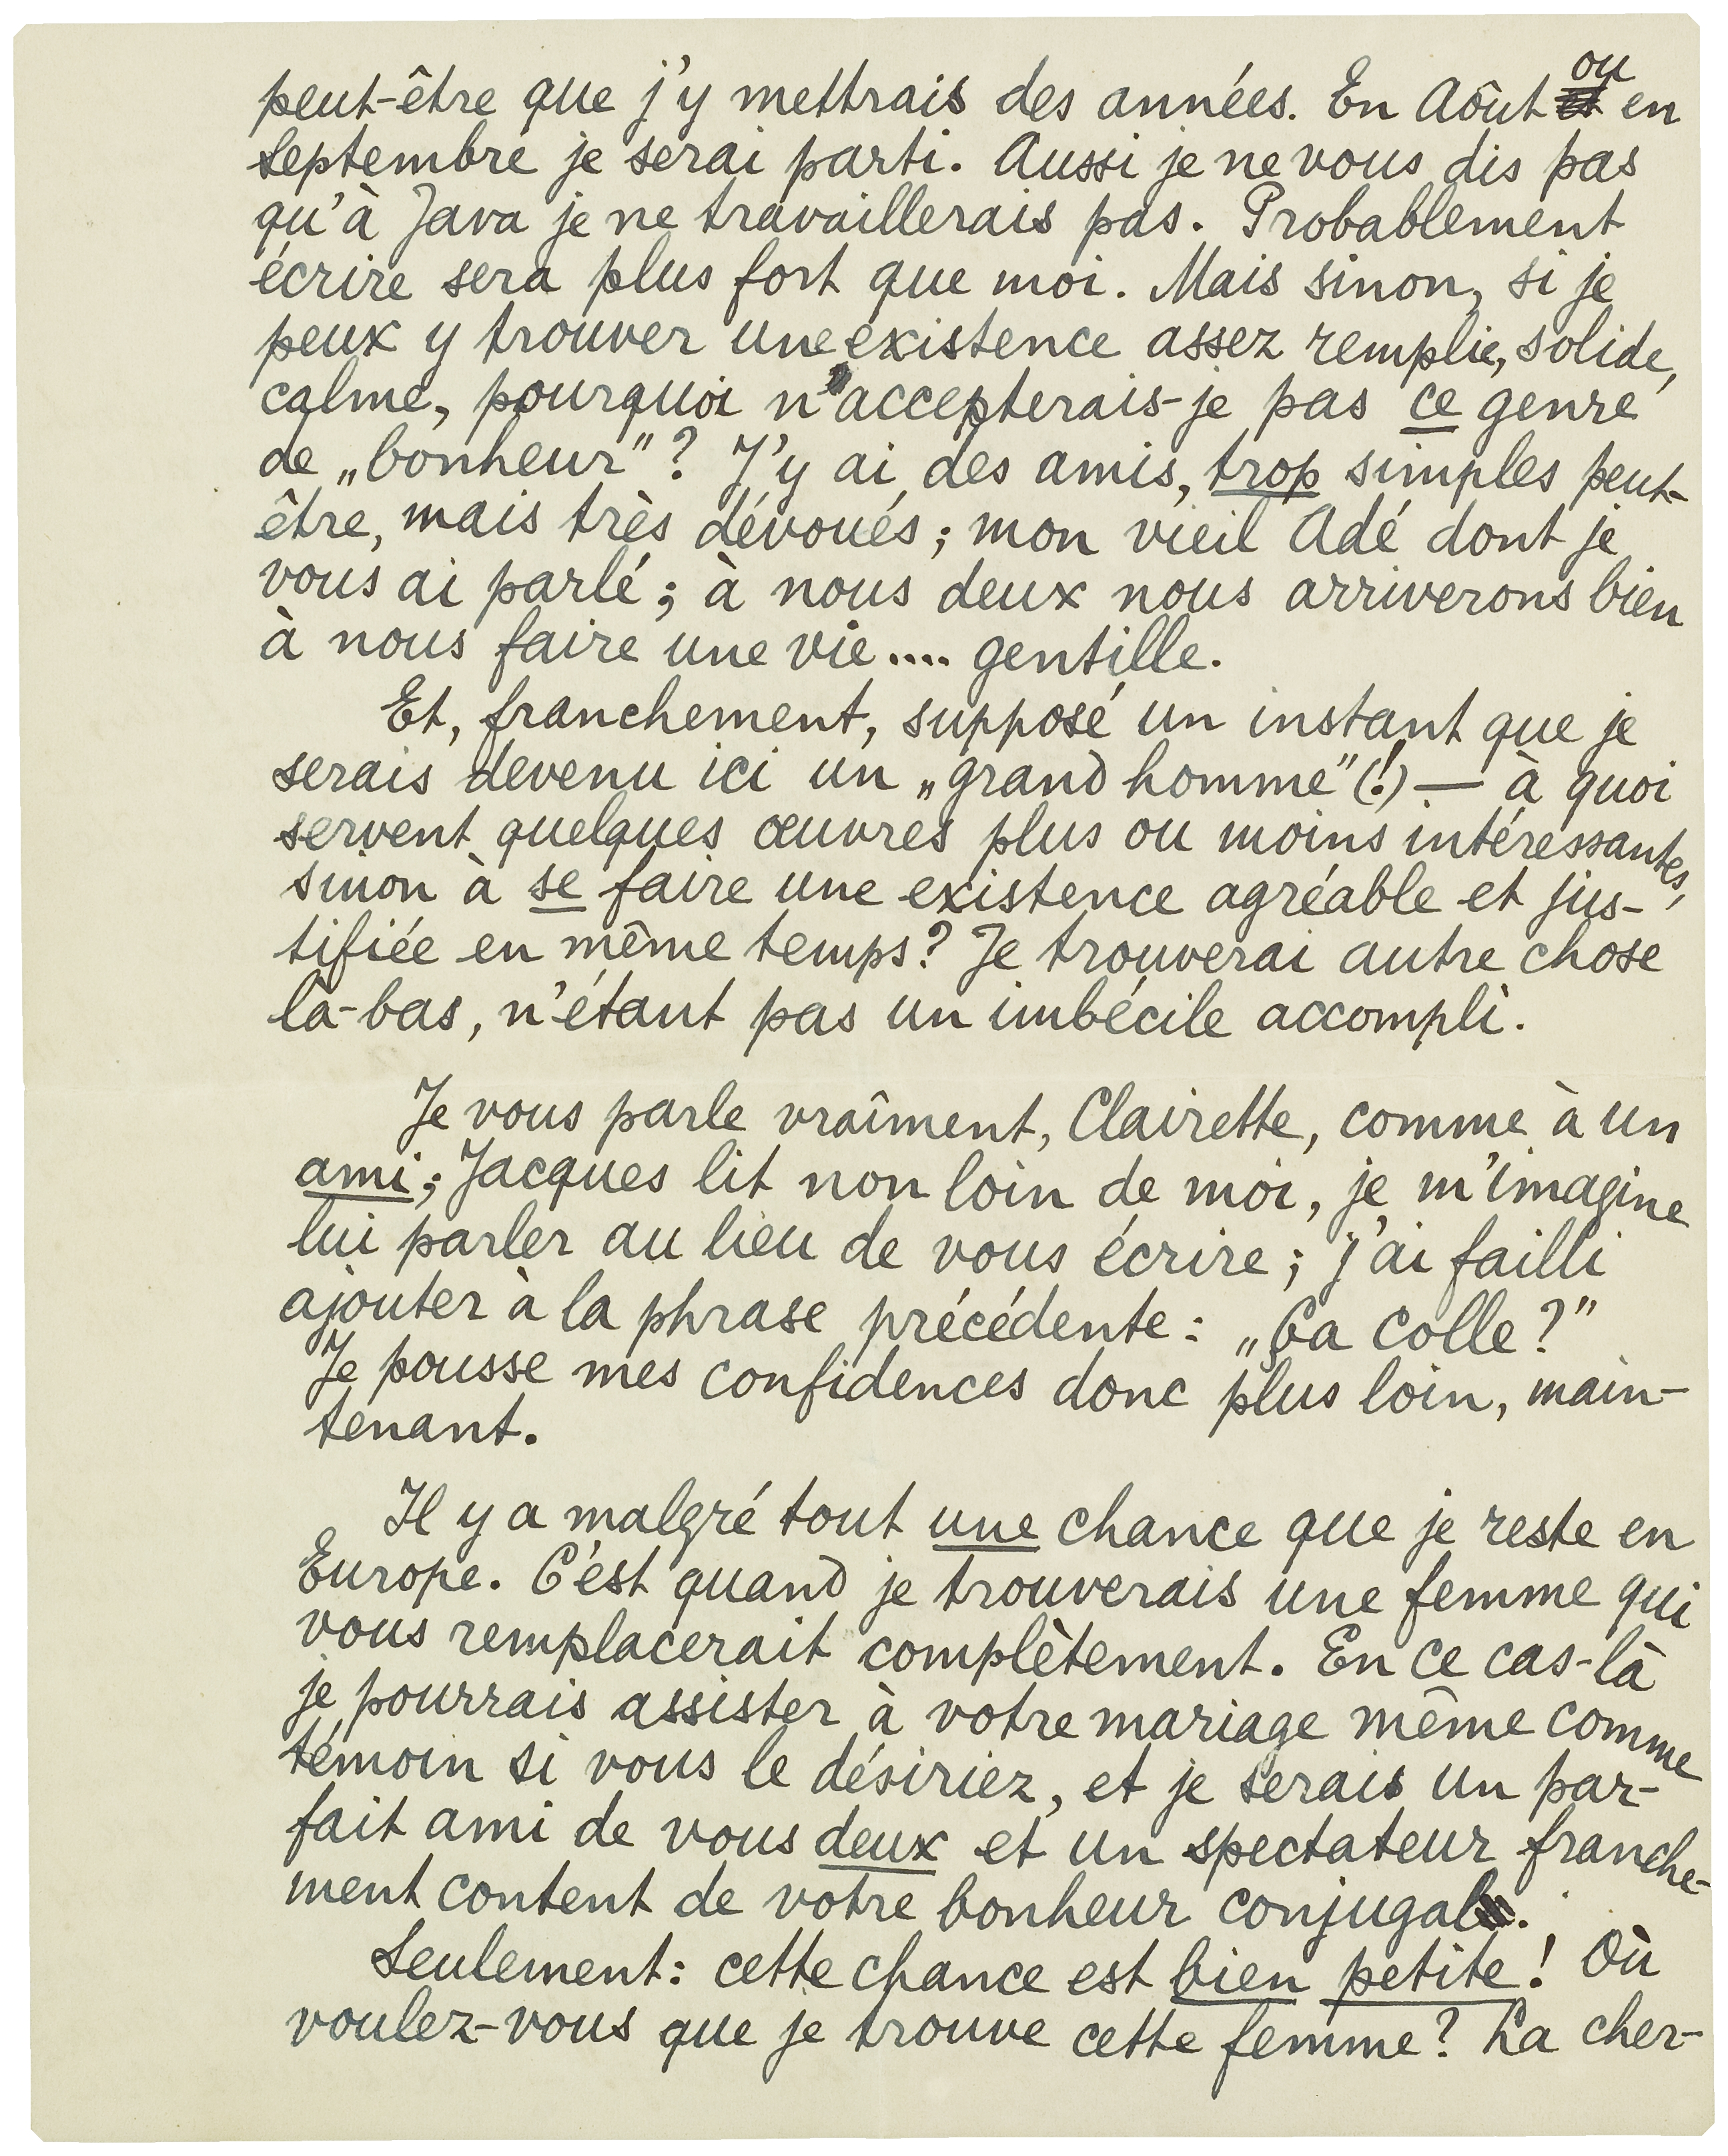 peut-être que j'y mettrais des années. En Aôut ou en
Septembre je serai parti. Aussi je ne vous dis pas
qu'à Java je ne travaillerais pas. Probablement
écrire sera plus fort que moi. Mais sinon, si je
peux y trouver une existence assez remplie, solide,
calme, pourquoi n'accepterais-je pas ce genre
de „bonheur"? J'y ai des amis, trop simples peut-
être, mais très dévoués; mon vieil Adé dont je
vous ai parlé; à nous deux nous arriverons bien
à nous faire une vie.... gentille.
Et, franchement, supposé un instant que je
serais devenu ici un „grand homme"(!) — à quoi
servent quelques œuvres plus ou moins intéressantes,
sinon à se faire une existence agréable et jus-
tifiée en même temps? Je trouverai autre chose
là-bas, n'étant pas un imbécile accompli.
Je vous parle vraîment, Clairette, comme à un
ami; Jacques lit non loin de moi, je m'imagine
lui parler au lieu de vous écrire; j'ai failli
ajouter à la phrase précédente: „Ça colle?"
Je pousse mes confidences donc plus loin, main-
tenant.
Il y a malgré tout une chance que je reste en
Europe. C'est quand je trouverais une femme qui
vous remplacerait complètement. En ce cas-là
je pourrais assister à votre mariage même comme
témoin si vous le désiriez, et je serais un par-
fait ami de vous deux et un spectateur franche-
ment content de votre bonheur conjugal.
Seulement: cette chance est bien petite! Où
voulez-vous que je trouve cette femme? La cher-